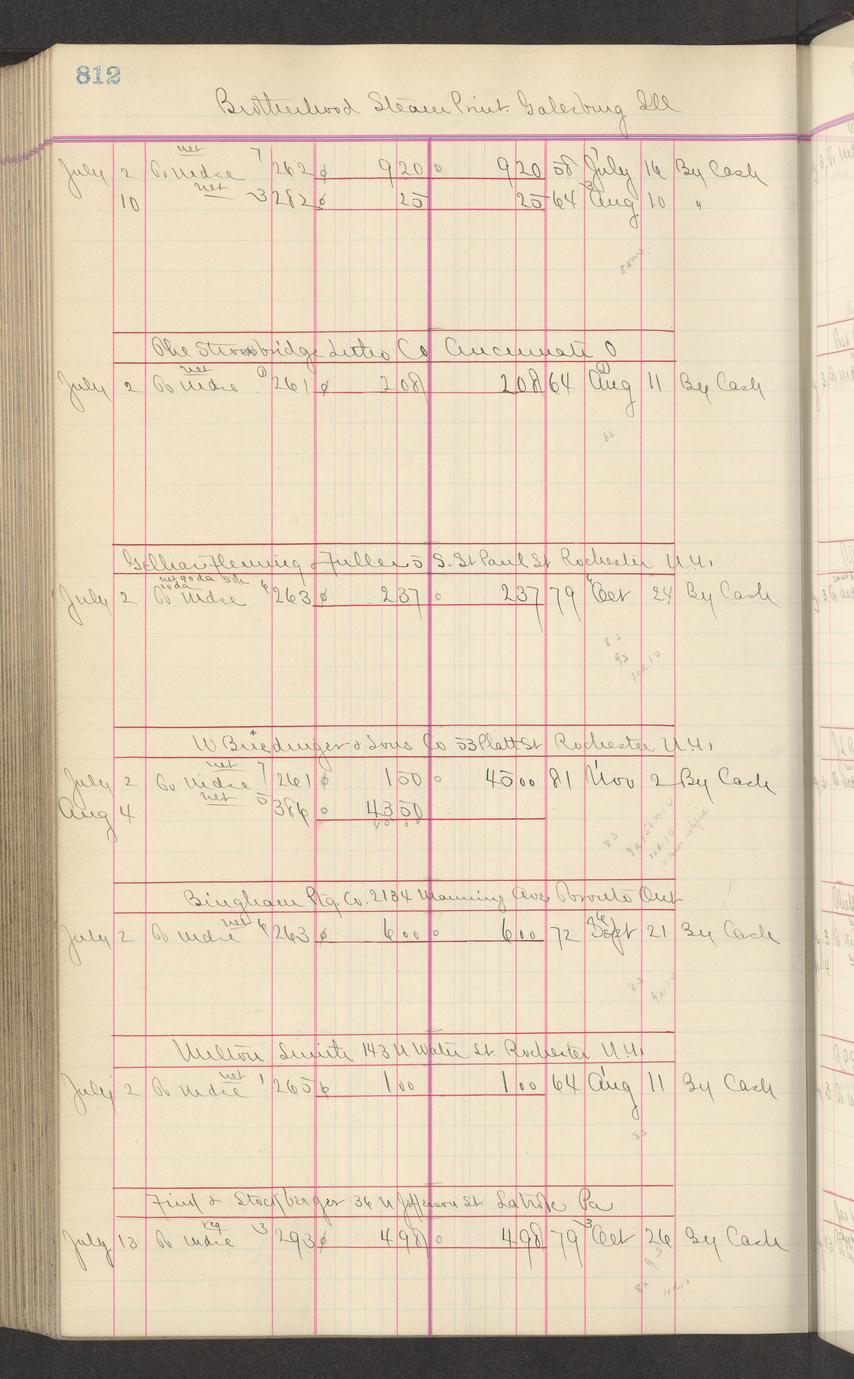 812
Brotherhood Steam Print. Galesburg Ill
net
July 2 To Mdse 7 262 920 920 58 July 16 By Cash
10 net 3 282 25 25 64 Aug 10 "
The Strowbridge Litho Co Cincinnati O
net
July 2 To Mdse 1 261 208 208 64 Aug 11 By Cash
85
Fleming & Fuller 5 S. St Paul St Rochester N.Y.
net 90 da
July 2 To Mdse 6 263 237 237 79 Oct 24 By Cash
85
95
10 & 10
W Briedinger & Sons Co 53 Platt St Rochester N.Y.
net
July 2 To Mdse 7 261 150 4500 81 Nov 2 By Cash
Aug 4 net 5 386 4350
85
Bingham Ptg. Co. 2134 Manning Ave Toronto Ont
net
July 2 To Mdse 6 263 600 600 72 Sept 21 By Cash
85
Milton Smith 143 N Water St. Rochester N.Y.
net
July 2 To Mdse 1 265 100 100 64 Aug 11 By Cash
85
Fink & Stockberger 36 N Jefferson St. Latrobe Pa
reg
July 13 To Mdse 3 293 498 498 79 Oct 26 By Cash
95
85